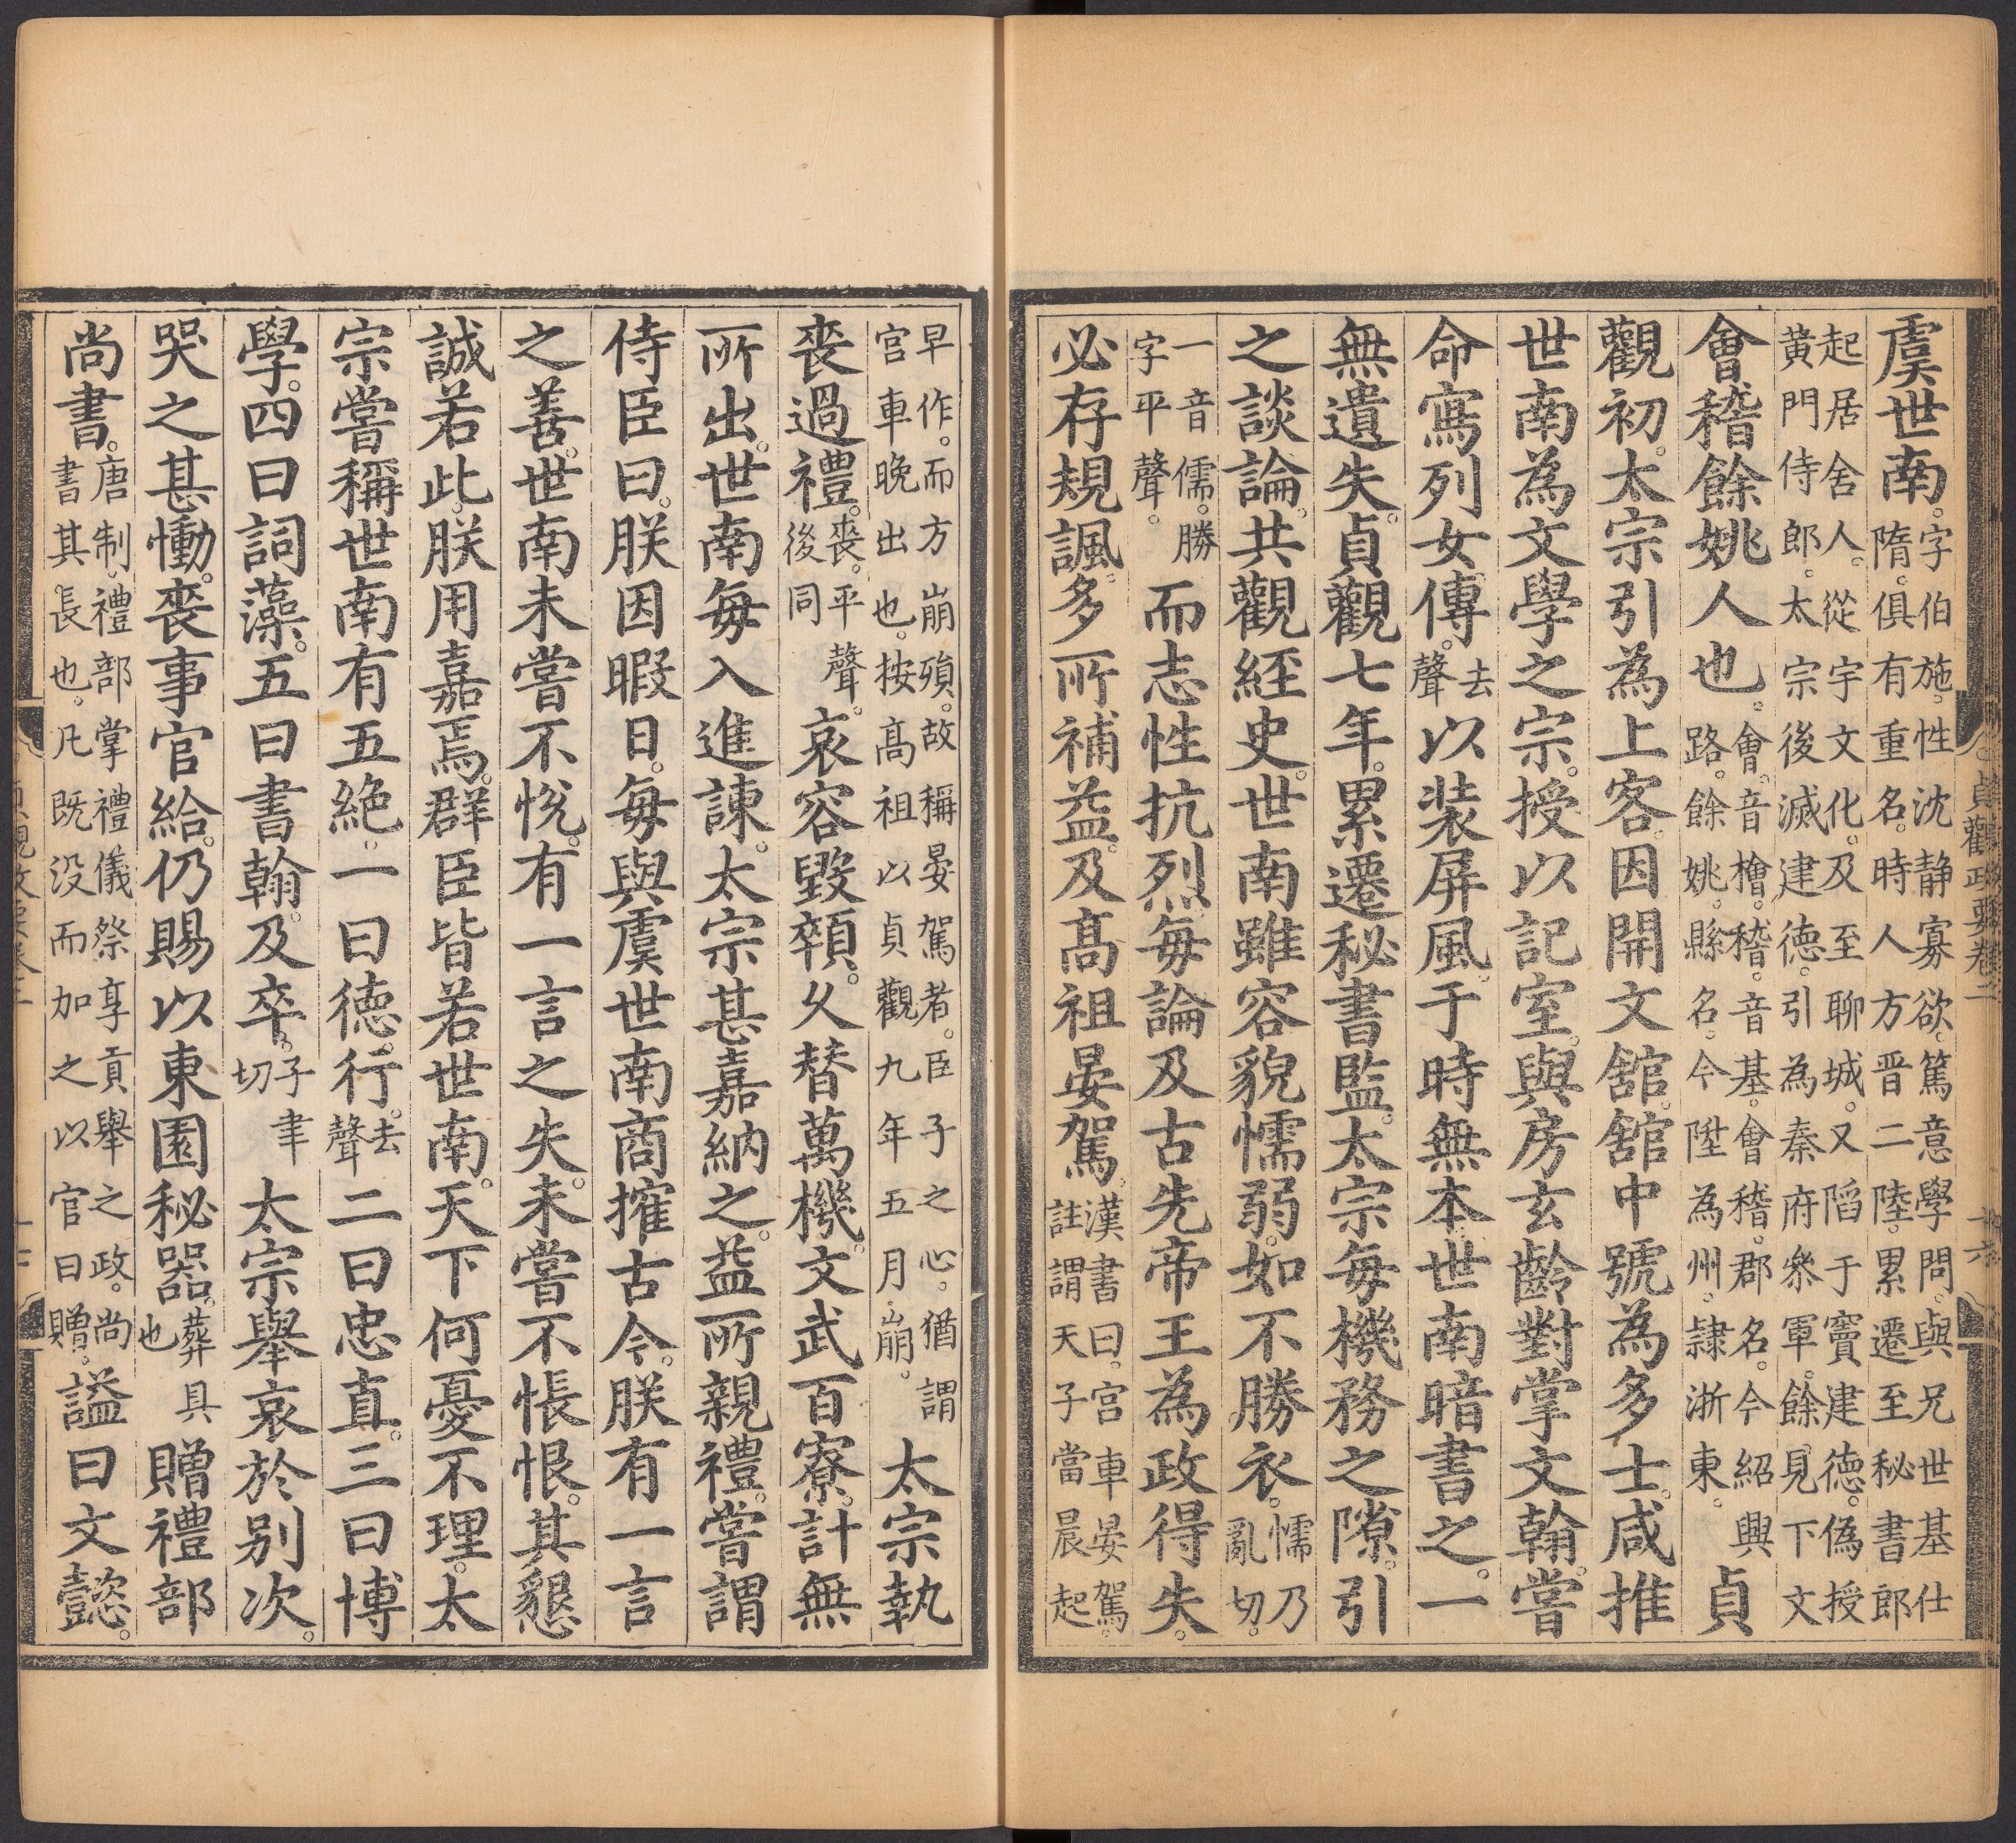 虞世南。字伯施。性沈静寡欲。篤意學問。與兄世基仕隋。俱有重名。時人方晋二陸。累遷至秘書郎
起居舍人。從宇文化及至聊城。又陷于竇建德。偽授黄門侍郎。太宗後滅建德。引為秦府叅軍。餘見下文
會稽餘姚人也。會。音檜。稽。音基。會稽。郡名。今紹興路。餘姚。縣名。今陞為州。隷浙東。貞
觀初。太宗引為上客。因開文舘。舘中號為多士。咸推
世南為文學之宗。授以記室。與房玄齡對掌文翰。嘗
命寫列女傳。去聲以装屏風。于時無本。世南暗書之。一
無遺失。貞觀七年。累遷秘書監。太宗毎機務之隙。引
之談論。共觀經史。世南雖容貌懦弱。如不勝衣。懦乃亂切。
一音儒。勝字平聲。而志性抗烈。毎論及古先帝王為政得失。
必存規諷。多所補益。及髙祖晏駕。漢書曰。宫車晏駕。註謂天子當晨起
貞觀政要卷二
十六
早作。而方崩殞。故稱晏駕者。臣子之心。猶謂宫車晚出也。按髙祖以貞觀九年五月崩。太宗執
喪過禮。喪。平聲。後同哀容毀顇。乆替萬機。文武百寮。計無
所出。世南毎入進諫。太宗甚嘉納之。益所親禮。嘗謂
侍臣曰。朕因暇日。毎與虞世南商搉古今。朕有一言
之善。世南未嘗不悅。有一言之失。未嘗不悵恨。其懇
誠若此。朕用嘉焉。群臣皆若世南。天下何憂不理。太
宗嘗稱世南有五絶。一曰德。行。去聲二曰忠直。三曰博
學。四曰詞藻。五曰書翰。及卒。子聿切太宗舉哀於别次。
哭之甚慟。喪事官給。仍賜以東園秘器。葬具也贈禮部
尚書。唐制。禮部掌禮儀祭享貢舉之政。尚書其長也。凡既没而加之以官曰贈。謚曰文懿。